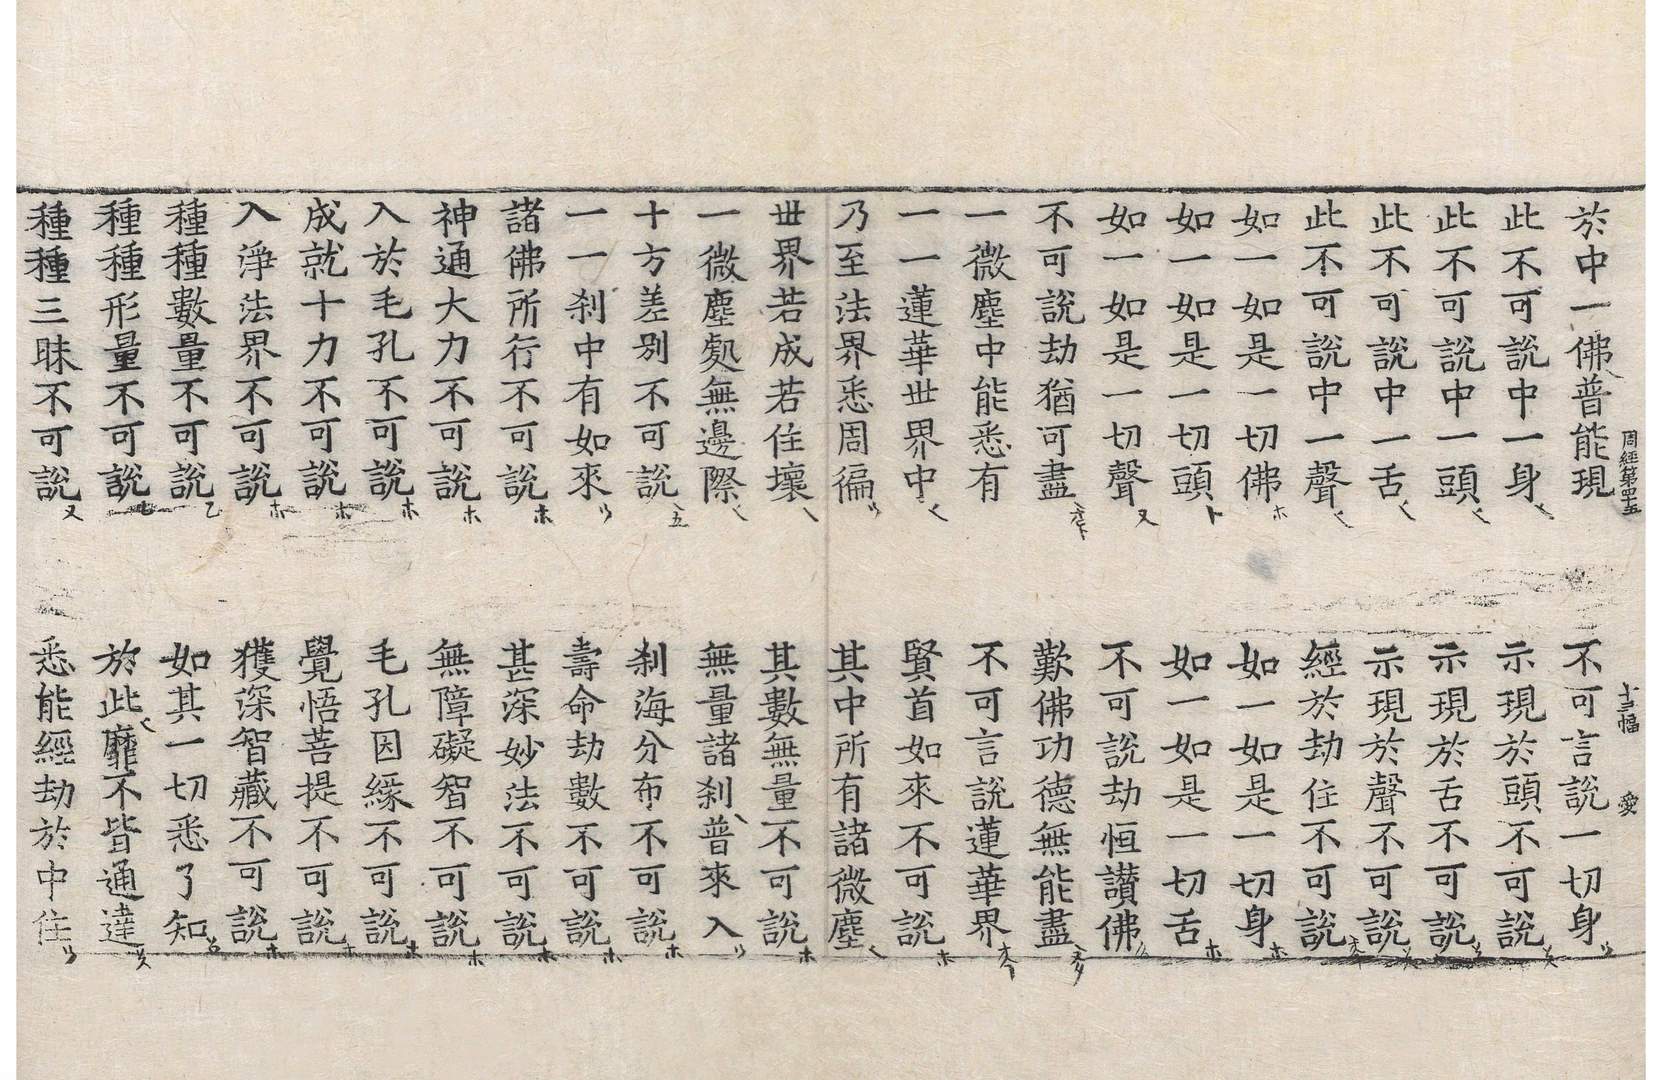 周經第四十五 十三幅 愛
於中一佛普能現 不可言說一切身
此不可說中一身 示現於頭不可說
此不可說中一頭 示現於舌不可說
此不可說中一舌 示現於聲不可說
此不可說中一聲 經於劫住不可說
如一如是一切佛 如一如是一切身
如一如是一切頭 如一如是一切舌
如一如是一切聲 不可說劫恒讃佛
不可說劫猶可盡 歎佛功德無能盡
一微塵中能悉有 不可言說蓮華界
一一蓮華世界中 賢首如來不可說
乃至法界悉周徧 其中所有諸微塵
世界若成若住壞 其數無量不可說
一微塵處無邊際 無量諸刹普來入
十方差別不可說 刹海分布不可說
一一刹中有如來 壽命劫數不可說
諸佛所行不可說 甚深妙法不可說
神通大力不可說 無障礙智不可說
入於毛孔不可說 毛孔因緣不可說
成就十力不可說 覺悟菩提不可說
入淨法界不可說 獲深智藏不可說
種種數量不可說 如其一切悉了知
種種形量不可說 於此靡不皆通達
種種三昧不可說 悉能經劫於中住